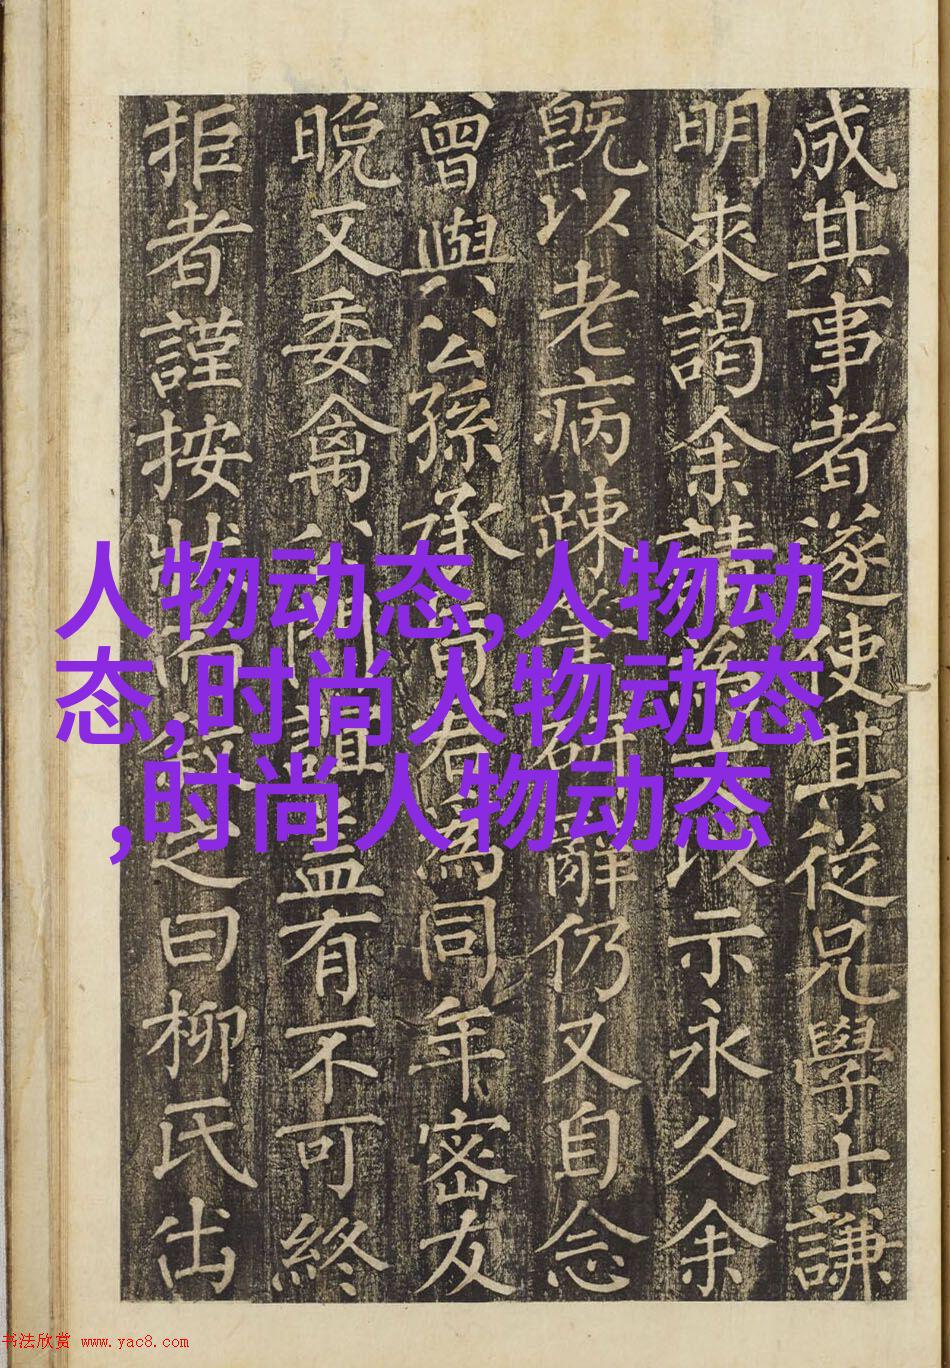 成其事者遂使其從兄學士謙
明來謁余請為文以示永久余
既以老病踈筆研辭仍又自念
曾與公孫承旨君為同年密友
晩又委禽公門誼盖有不可終
拒者謹按狀而敘之曰柳氏出
人物动态,人物动
态,时尚人物动态
,时尚人物动态
书法欣赏 www.yac8.com